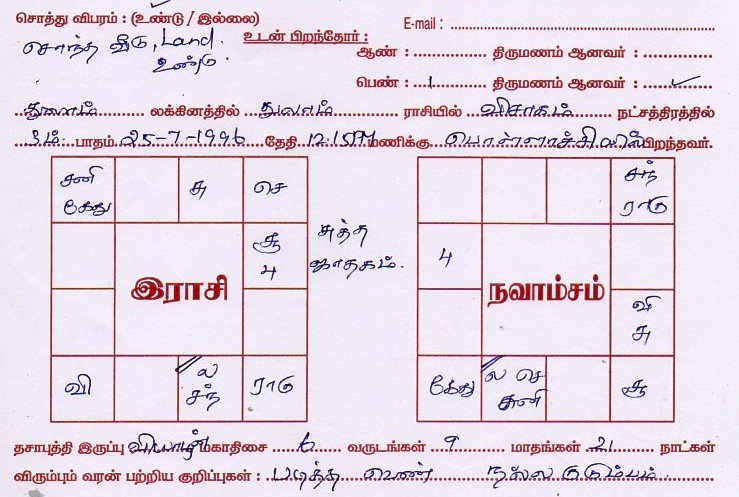 சொத்து விபரம் : (உண்டு / இல்லை) E-mail :
சொந்த வீடு, Land. உடன் பிறந்தோர் :
உண்டு. ஆண் : திருமணம் ஆனவர் :
பெண் : 1 திருமணம் ஆனவர் : ✓
துலாம் லக்கினத்தில் துலாம் ராசியில் விசாகம் நட்சத்திரத்தில்
3ம் பாதம் 25-7-1996 தேதி 12.15PM மணிக்கு பொள்ளாச்சியில் பிறந்தவர்.
சனி சு செ சந்
கேது ராகு
சூ சுத்த
பு ஜாதகம். பு
இராசி நவாம்சம்
வி
சு
வி ல ராகு கேது ல செ சூ
சந் சனி
தசாபுத்தி இருப்பு வியாழன் மகாதிசை 6 வருடங்கள் 9 மாதங்கள் 21 நாட்கள்
விரும்பும் வரன் பற்றிய குறிப்புகள் : படித்த பெண் நல்ல குடும்பம்.